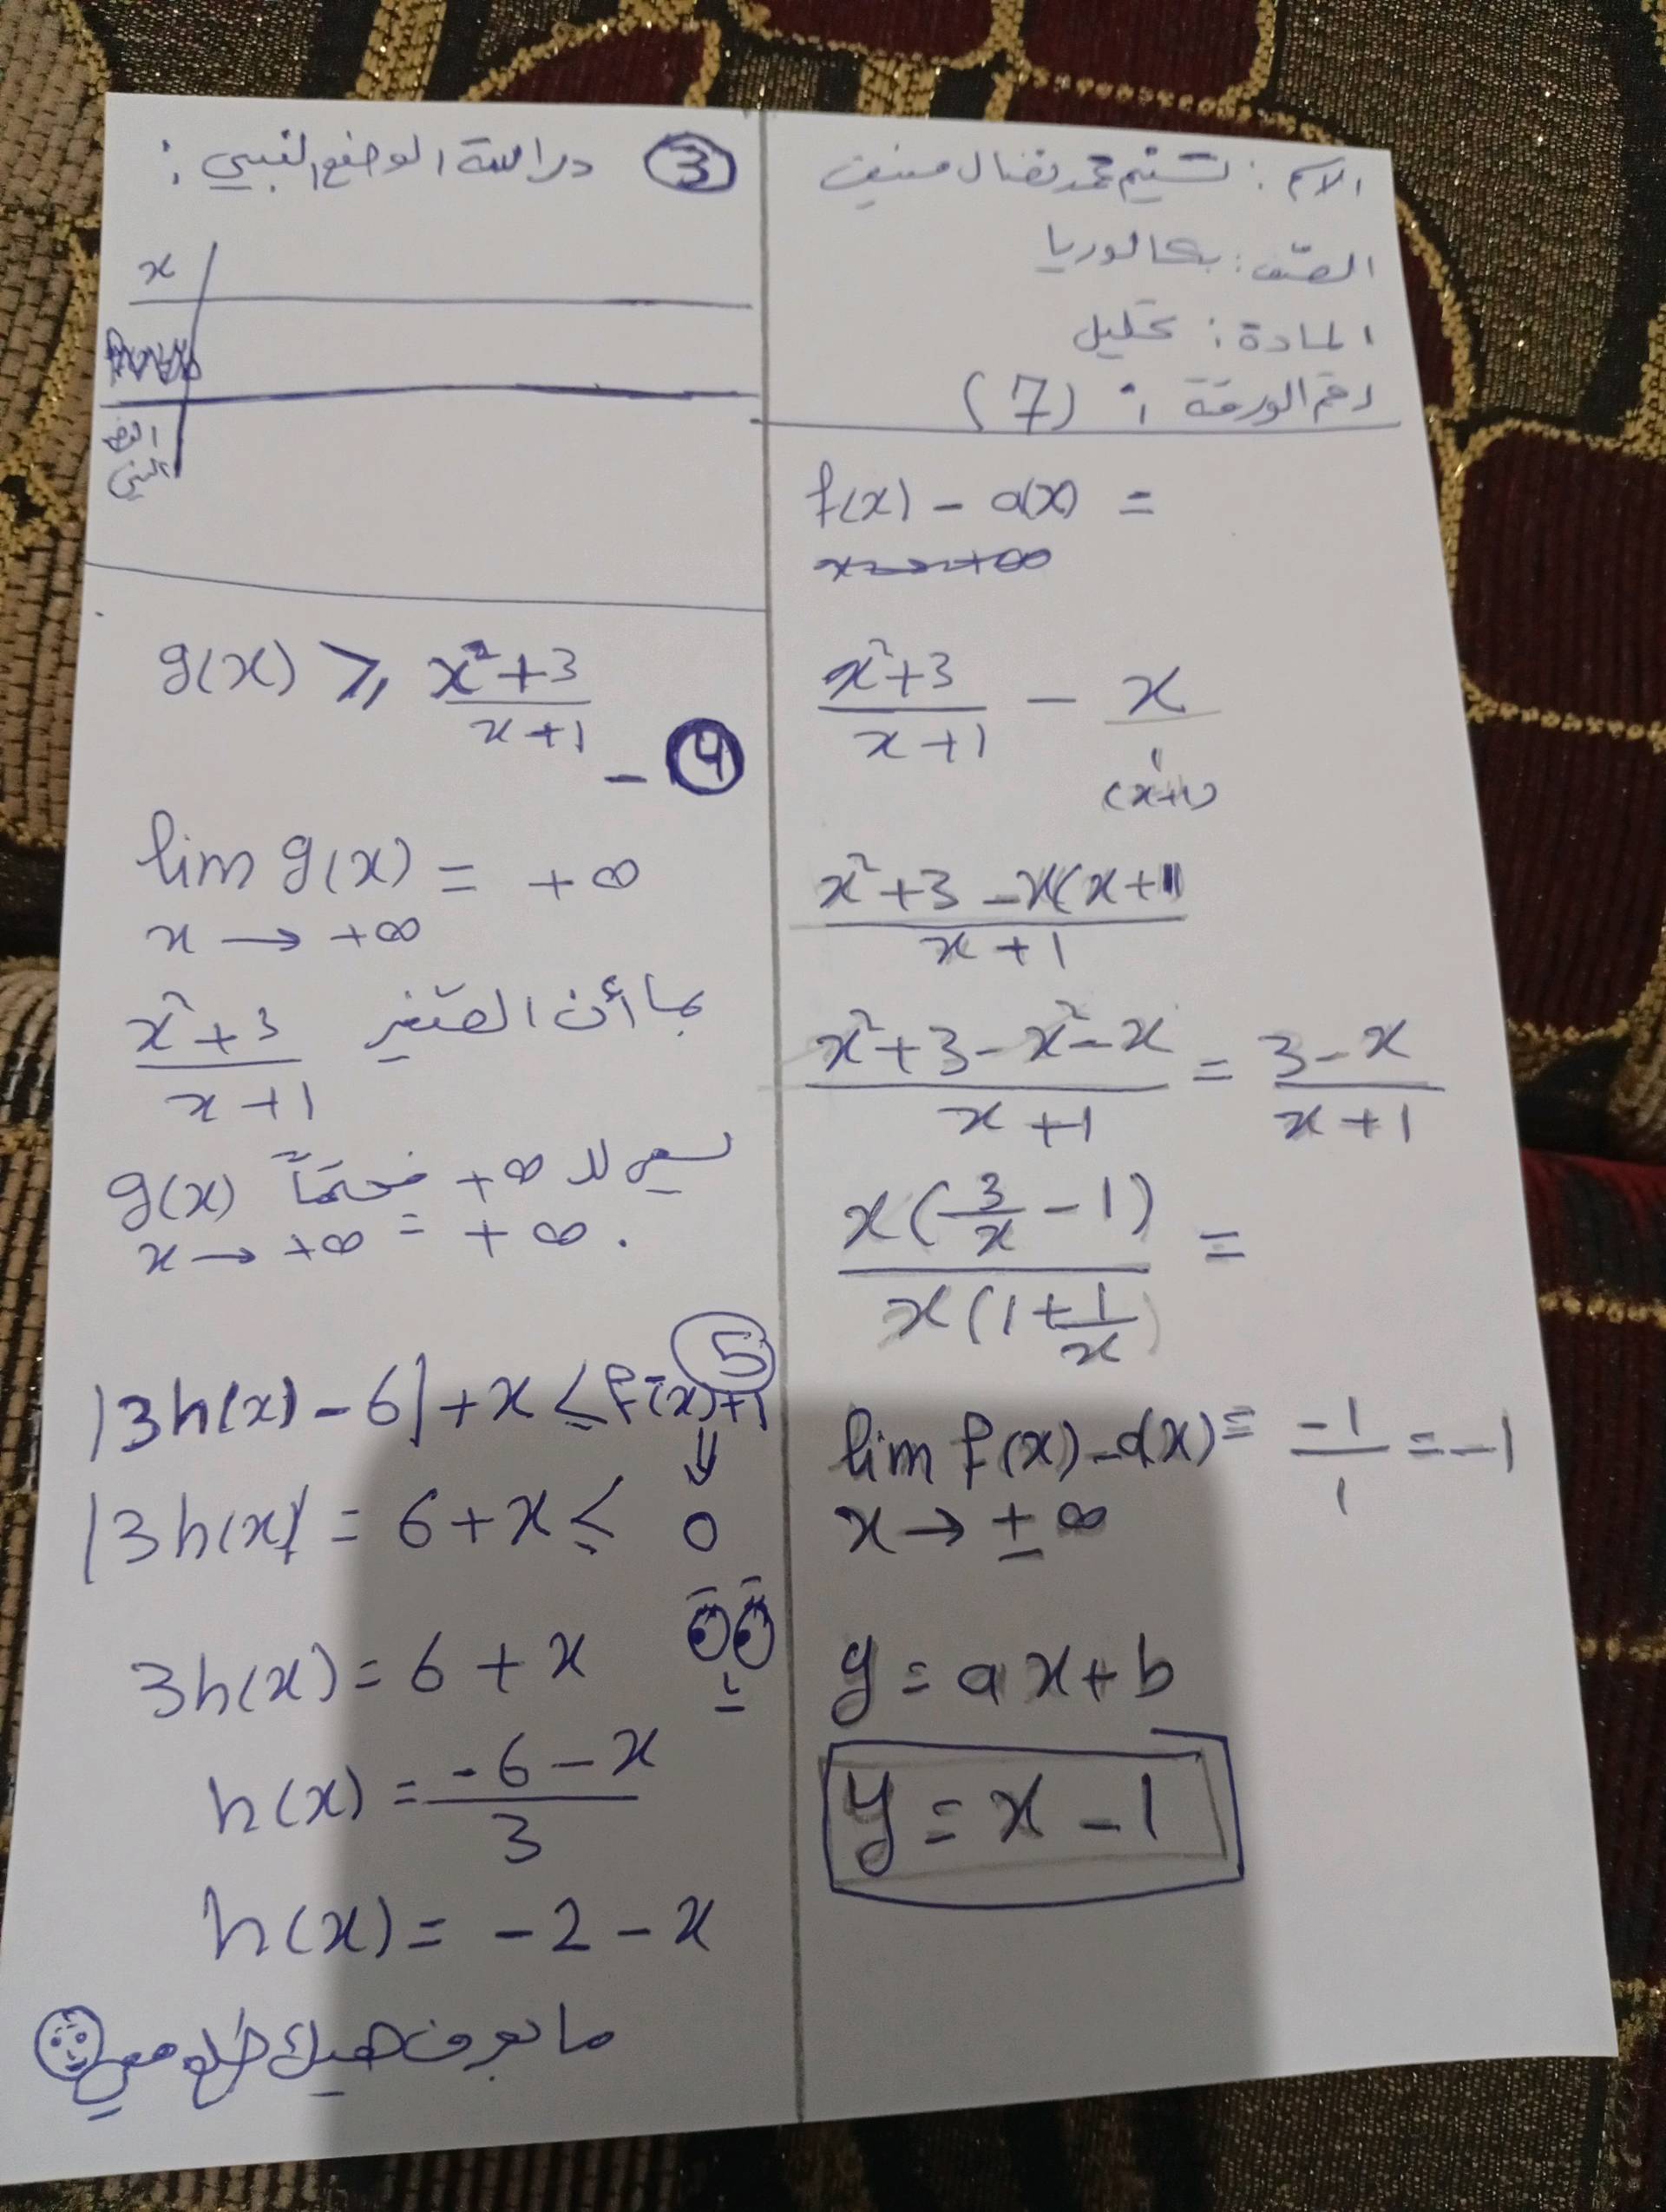 الاسم: تسنيم محمد نضال منيف
الصف: بكالوريا
المادة: تحليل
رقم الورقة: (7)
f(x) - a(x) =
x²+3/x+1 - x/1
(x+1)
x²+3-x(x+1/x+1
x²+3-x²-x/x+1 = 3-x/x+1
x(3/x - 1)/x(1+1/x) =
lim f(x)-a(x) = -1/1 = -1
x → ±∞
y = ax+b
y = x - 1
③ دراسة الوضع النسبي:
x
الوضع
النسبي
g(x) ⩾ x²+3/x+1
④ -
lim g(x) = +∞
x → +∞
بما أن الصغير x²+3/x+1
يسعى لـ +∞ فحتماً g(x)
x → +∞ = +∞.
⑤
|3h(x)-6|+x ≤ f(x)+1
⇓
|3h(x) = 6+x ≤ 0
3h(x) = 6+x
h(x) = -6-x/3
h(x) = -2-x
ما بعرف هيك طلع معي